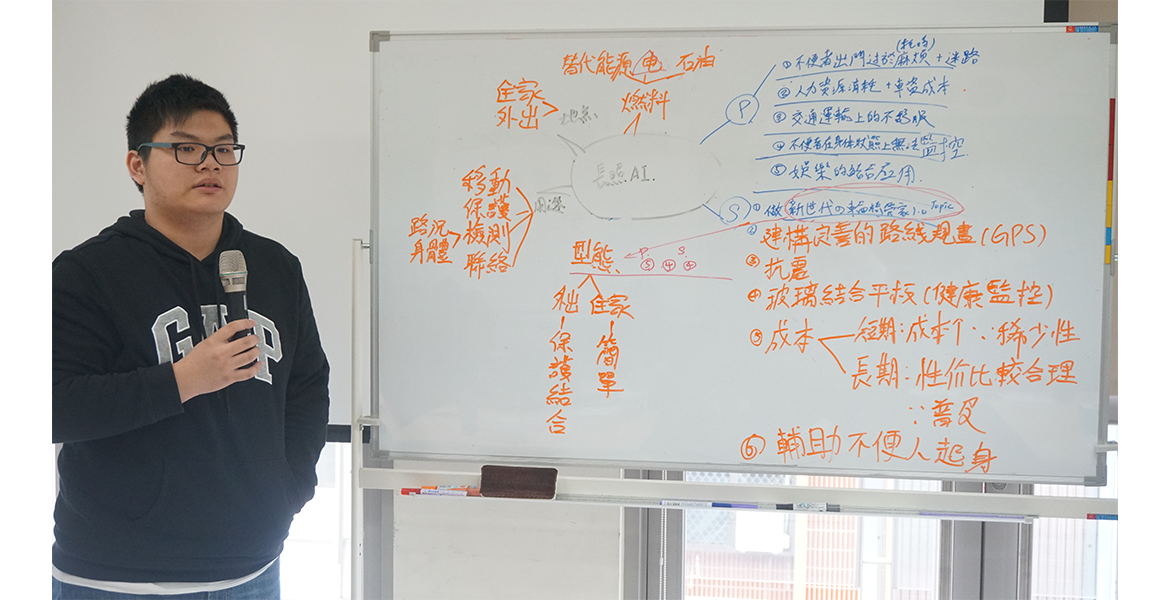 GAP
替代能源 電 石油
燃料
住家
外出
地點
長照.AI.
用途
移動
保護
檢測
聯絡
路況
身體
型態
外出
住家
保護結合
簡單
P
(耗時)
①不便者出門過於麻煩+迷路
②人力資源消耗+車資成本
③交通運輸上的不舒服
④不便者在身体狀態上無法監控
⑤娛樂的結合應用.
S
①做新世代の輪椅管家!。Topic
②建構完善的路线規畫(GPS)
③抗震
④玻璃結合平板(健康監控)
⑤成本
短期:成本个∵稀少性
長期:性价比較合理
∵普及
⑥輔助不便人起身
P. S.
⑤ ④